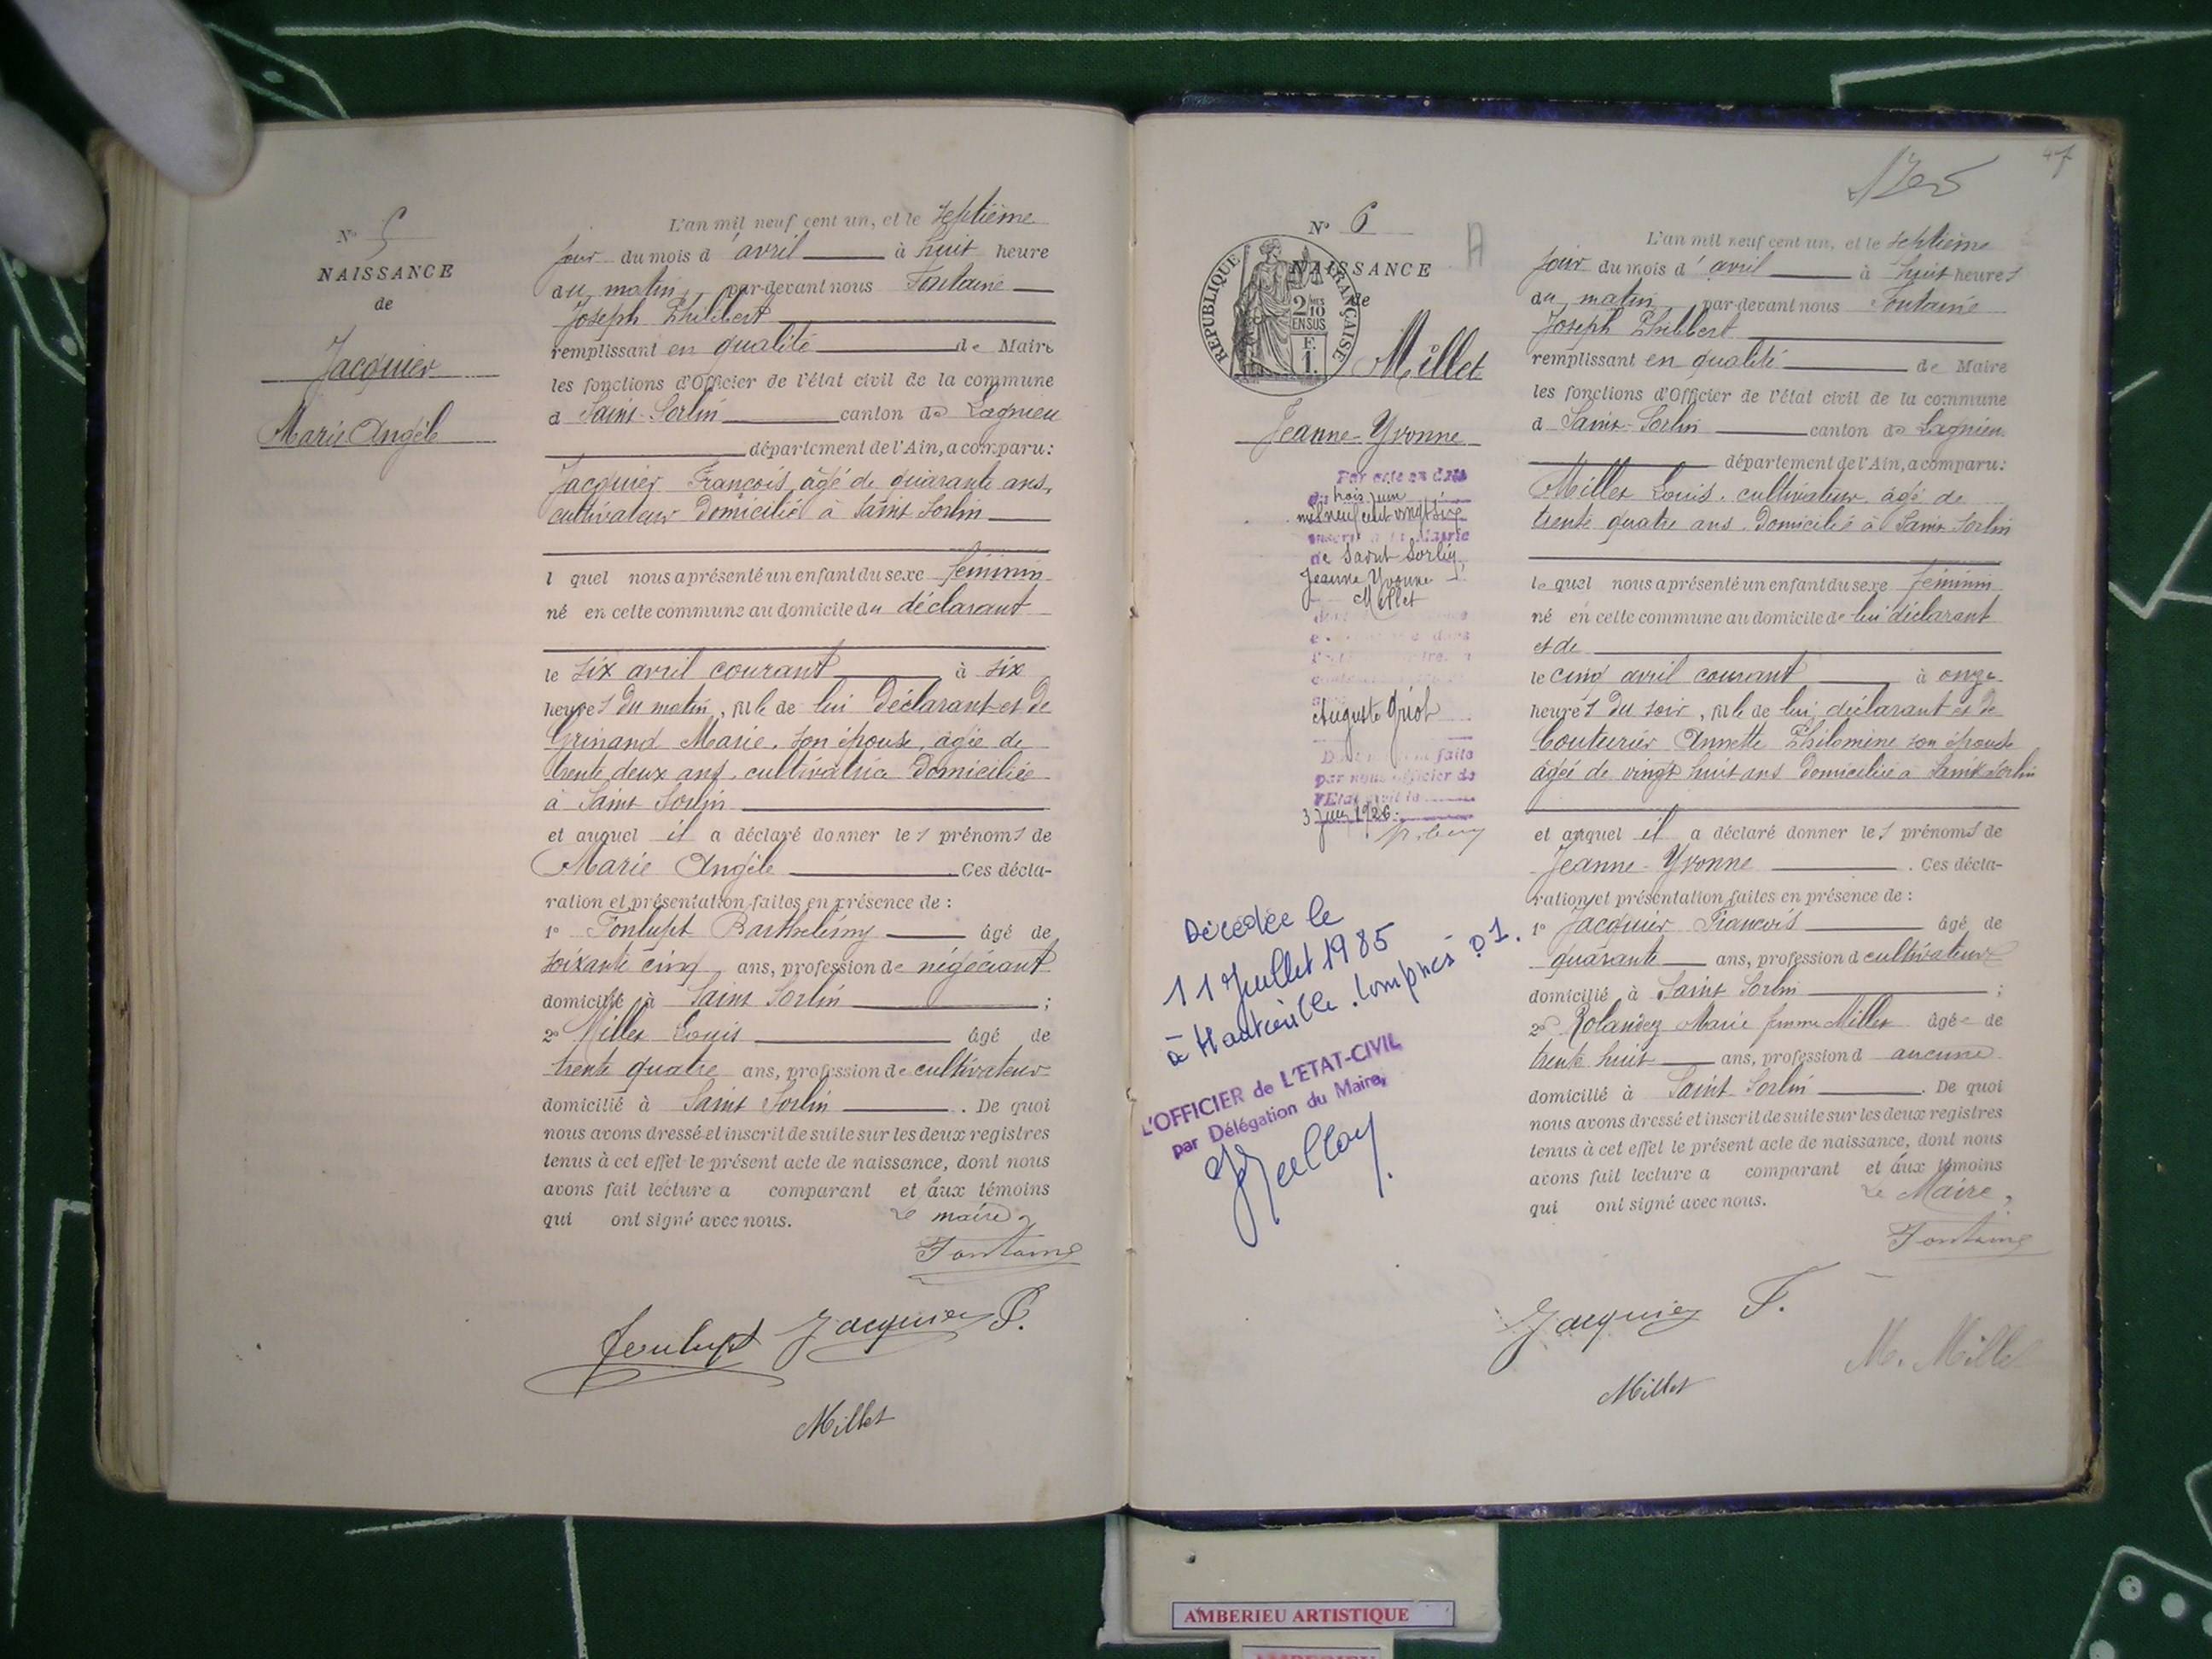 N° 5
NAISSANCE
de
Jacquier
Marie Angèle
L'an mil neuf cent un, et le septième
jour du mois d'avril à huit heure
du matin, par-devant nous Fontaine
Joseph Philibert
remplissant en qualité de Maire
les fonctions d'Officier de l'état civil de la commune
d Saint-Sorlin canton de Lagnieu
département de l'Ain, a comparu:
Jacquier François, âgé de quarante ans,
cultivateur domicilié à Saint Sorlin
l quel nous a présenté un enfant du sexe féminin
né en cette commune au domicile du déclarant
le six avril courant à six
heures du matin, fille de lui déclarant et de
Grinand Marie, son épouse, âgée de
trente deux ans, cultivatrice domiciliée
à Saint Sorlin
et auquel il a déclaré donner les prénoms de
Marie Angèle . Ces décla-
ration et présentation faites en présence de :
1° Fonlupt Barthelémy âgé de
soixante cinq ans, profession de négociant
domicilié à Saint Sorlin ;
2° Millet Louis âgé de
trente quatre ans, profession de cultivateur
domicilié à Saint Sorlin . De quoi
nous avons dressé et inscrit de suite sur les deux registres
tenus à cet effet le présent acte de naissance, dont nous
avons fait lecture a comparant et aux témoins
qui ont signé avec nous. Le maire,
Fontaine
Fonlupt Jacquier F.
Millet
47
N° 6
A
NAISSANCE
de
RÉPUBLIQUE FRANÇAISE
2/10 EN SUS
F. 1.
Millet
Jeanne-Yvonne
Par acte en date
du trois juin
mil neuf cent vingt six
inscrit à la Mairie
de Saint Sorlin
Jeanne Yvonne
Millet
Auguste Griot
par nous officier de
l'Etat civil le
3 Juin 1926.
Décédée le
11 Juillet 1985
à Hauteville-Lompnes 01.
L'OFFICIER de L'ETAT-CIVIL
par Délégation du Maire,
L'an mil neuf cent un, et le septième
jour du mois d'avril à huit heures
du matin par-devant nous Fontaine
Joseph Philibert
remplissant en qualité de Maire
les fonctions d'Officier de l'état civil de la commune
d Saint-Sorlin canton de Lagnieu
département de l'Ain, a comparu:
Millet Louis, cultivateur, âgé de
trente quatre ans, domicilié à Saint Sorlin
le quel nous a présenté un enfant du sexe féminin
né en cette commune au domicile de lui déclarant
et de
le cinq avril courant à onze
heures du soir, fille de lui déclarant et de
Couturier Annette Philomine son épouse
âgée de vingt huit ans domiciliée à Saint Sorlin
et auquel il a déclaré donner les prénoms de
Jeanne-Yvonne . Ces décla-
ration et présentation faites en présence de :
1° Jacquier François âgé de
quarante ans, profession d cultivateur
domicilié à Saint Sorlin ;
2° Rolandez Marie femme Millet âgée de
trente huit ans, profession d aucune
domicilié à Saint Sorlin . De quoi
nous avons dressé et inscrit de suite sur les deux registres
tenus à cet effet le présent acte de naissance, dont nous
avons fait lecture a comparant et aux témoins
qui ont signé avec nous. Le Maire,
Fontaine
Jacquier F.
M. Millet
Millet
AMBERIEU ARTISTIQUE